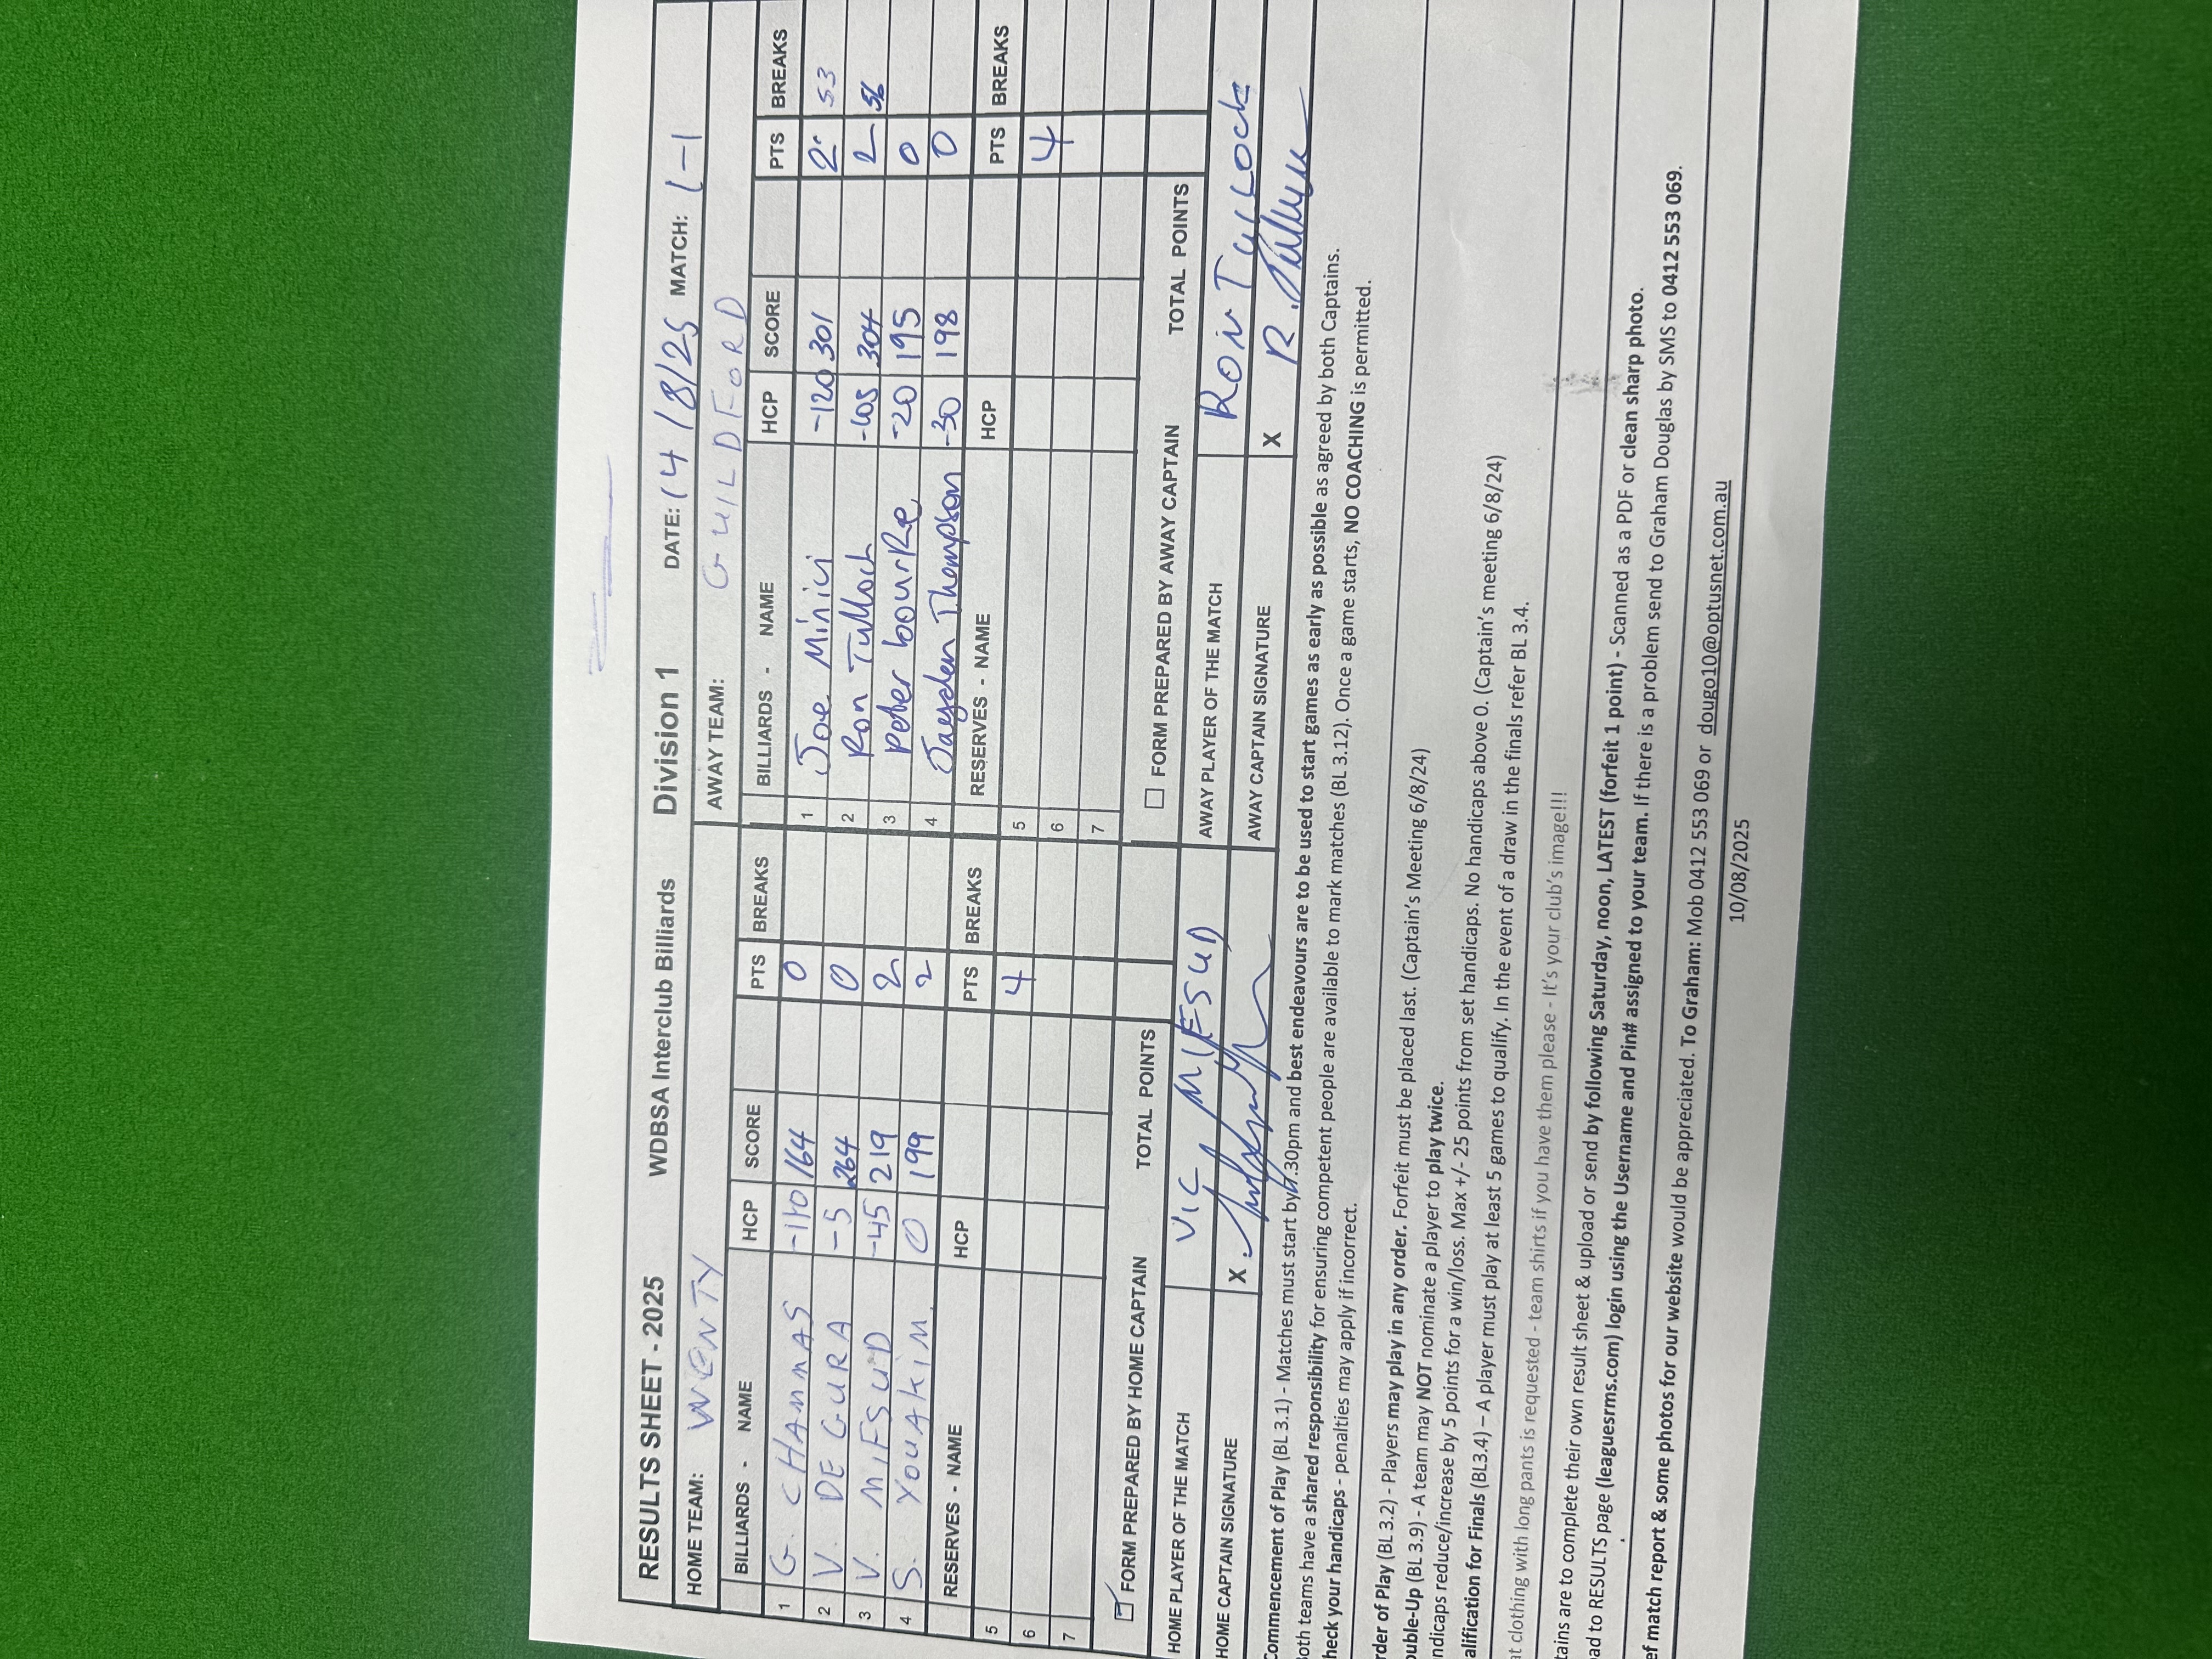 RESULTS SHEET - 2025 WDBSA Interclub Billiards Division 1 DATE: 14/8/25 MATCH: 1-1
HOME TEAM: WENTY AWAY TEAM: GUILDFORD
BILLIARDS - NAME HCP SCORE PTS BREAKS BILLIARDS - NAME HCP SCORE PTS BREAKS
1 G. CHAMMAS -110 164 0 1 Joe Minici -120 301 2 53
2 V. DE GURA -5 264 0 2 Ron Tulloch -105 304 2 56
3 V. MIFSUD -45 219 2 3 Peter bourke -20 195 0
4 S. YOUAKIM. 0 199 2 4 Jayden Thompson -30 198 0
RESERVES - NAME HCP PTS BREAKS RESERVES - NAME HCP PTS BREAKS
5 4 5 4
6 6
7 7
FORM PREPARED BY HOME CAPTAIN TOTAL POINTS FORM PREPARED BY AWAY CAPTAIN TOTAL POINTS
HOME PLAYER OF THE MATCH VIC MIFSUD AWAY PLAYER OF THE MATCH RON TULLOCK
HOME CAPTAIN SIGNATURE X AWAY CAPTAIN SIGNATURE X R.
Commencement of Play (BL 3.1) - Matches must start by 7.30pm and best endeavours are to be used to start games as early as possible as agreed by both Captains.
oth teams have a shared responsibility for ensuring competent people are available to mark matches (BL 3.12). Once a game starts, NO COACHING is permitted.
heck your handicaps - penalties may apply if incorrect.
rder of Play (BL 3.2) - Players may play in any order. Forfeit must be placed last. (Captain's Meeting 6/8/24)
ouble-Up (BL 3.9) - A team may NOT nominate a player to play twice.
ndicaps reduce/increase by 5 points for a win/loss. Max +/- 25 points from set handicaps. No handicaps above 0. (Captain's meeting 6/8/24)
alification for Finals (BL3.4) – A player must play at least 5 games to qualify. In the event of a draw in the finals refer BL 3.4.
at clothing with long pants is requested - team shirts if you have them please - It's your club's image!!!
tains are to complete their own result sheet & upload or send by following Saturday, noon, LATEST (forfeit 1 point) - Scanned as a PDF or clean sharp photo.
ad to RESULTS page (leaguesrms.com) login using the Username and Pin# assigned to your team. If there is a problem send to Graham Douglas by SMS to 0412 553 069.
ef match report & some photos for our website would be appreciated. To Graham: Mob 0412 553 069 or dougo10@optusnet.com.au
10/08/2025